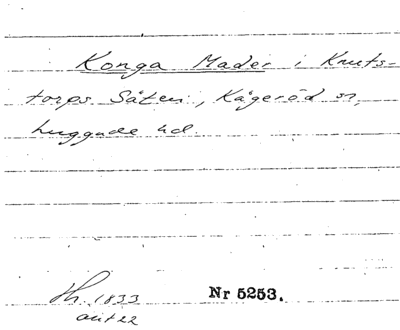 Konga Mader i Knuts-
torps Säteri, Kågeröd sn,
Luggude hd.
Th. 1833
Nr 5253.